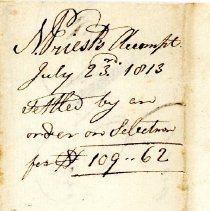 N Priests Accompt.
July 23rd. 1813
settled by an
order on Selectmen
for $ 109..62